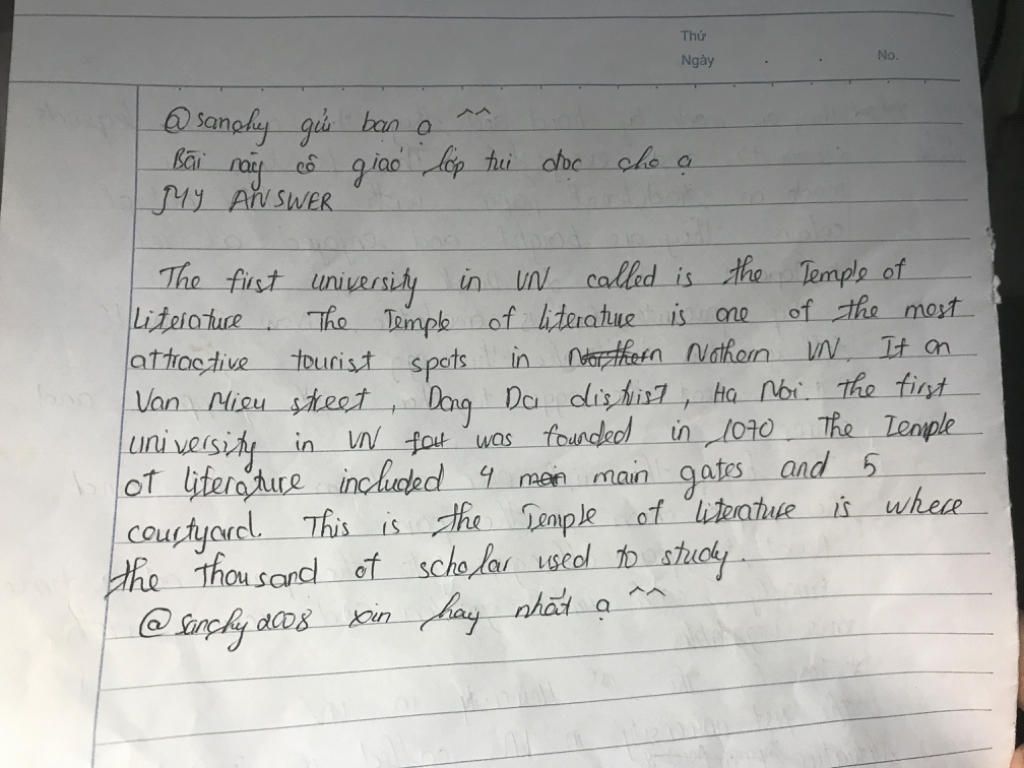 Thứ
Ngày . . No.
@sanchy gửi bạn ạ ^^
Bài này cô giáo lớp tui đọc cho ạ
MY ANSWER
The first university in VN called is the Temple of
Literature. The Temple of literature is one of the most
attractive tourist spots in Northern Nothern VN. It on
Van Mieu street, Dong Da distrist, Ha Noi. The first
university in VN was founded in 1070. The Temple
of literature included 4 main gates and 5
courtyard. This is the Temple of literature is where
the thousand of scholar used to study.
@sanchy2008 xin hay nhất ạ ^^